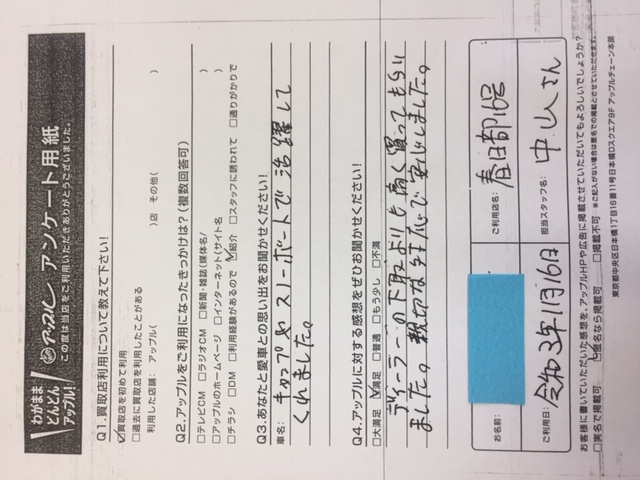 わがまま
どんどん
アップル!
アップル アンケート用紙
この度は当店をご利用いただきありがとうございました。
Q1.買取店利用について教えて下さい!
☑買取店を初めて利用
□過去に買取店を利用したことがある
利用した店舗: アップル( )店 その他( )
Q2.アップルをご利用になったきっかけは?(複数回答可)
□テレビCM □ラジオCM □新聞・雑誌(媒体名/ )
□アップルのホームページ □インターネット(サイト名 )
□チラシ □DM □利用経験があるので ☑紹介 □スタッフに誘われて □通りがかりで
Q3.あなたと愛車との思い出をお聞かせください!
車名: キャンプやスノーボートで活躍して
くれました。
Q4.アップルに対する感想をぜひお聞かせください!
□大満足 ☑満足 □普通 □もう少し □不満
ディーラーの下取よりも高く買ってもらい
ました。親切な対応で安心しました。
お名前:
ご利用店名: 春日部16号
ご利用日: 令和3年1月16日
担当スタッフ名: 中山さん
お客様に書いていただいた感想を、アップルHPや広告に掲載させていただいてもよろしいでしょうか?
□実名で掲載可 ☑匿名なら掲載可 □掲載不可 ※ご記入がない場合は匿名での掲載とさせていただきます。
東京都中央区日本橋1丁目16番11号日本橋Dスクエア9F アップルチェーン本部